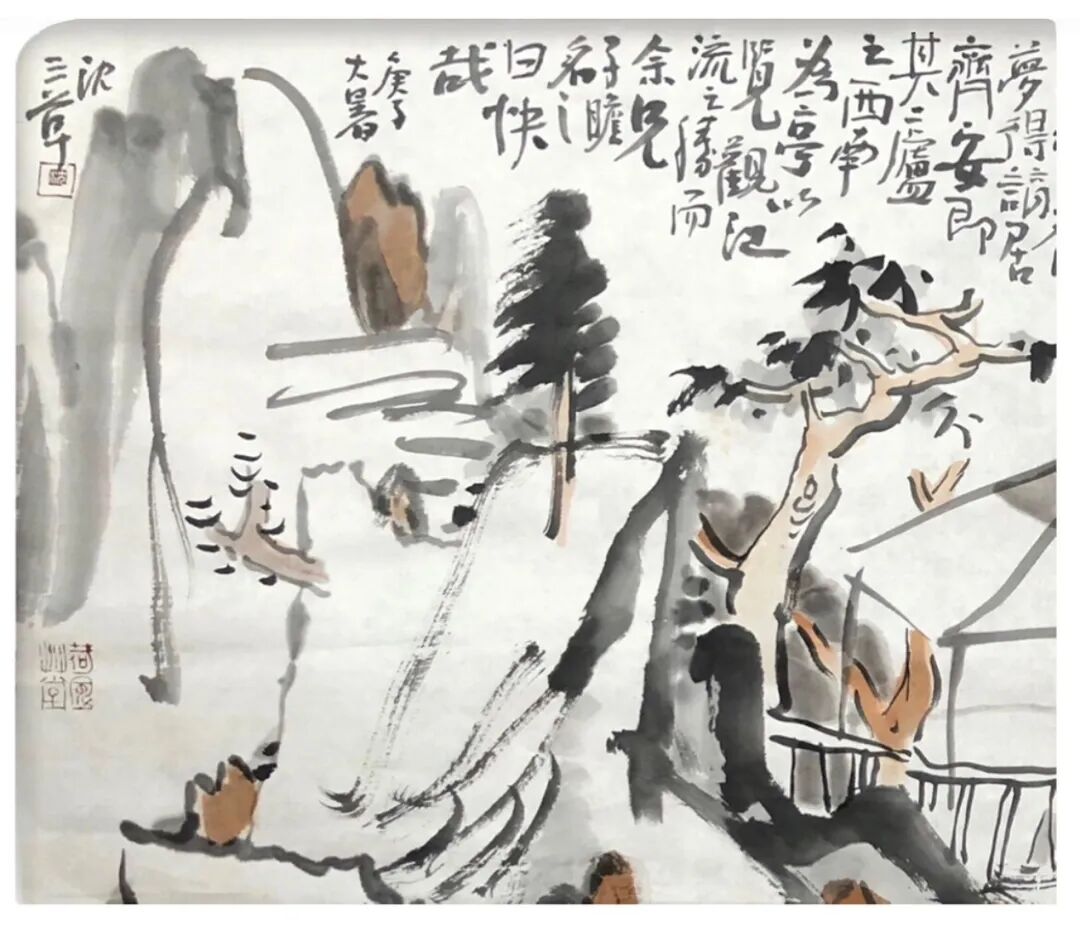 夢得謫居
齊安即
其廬
之西南
為亭以
覽觀江
流之勝而
余兄
子瞻
名之
曰快
哉
庚子
大暑
沈
三草